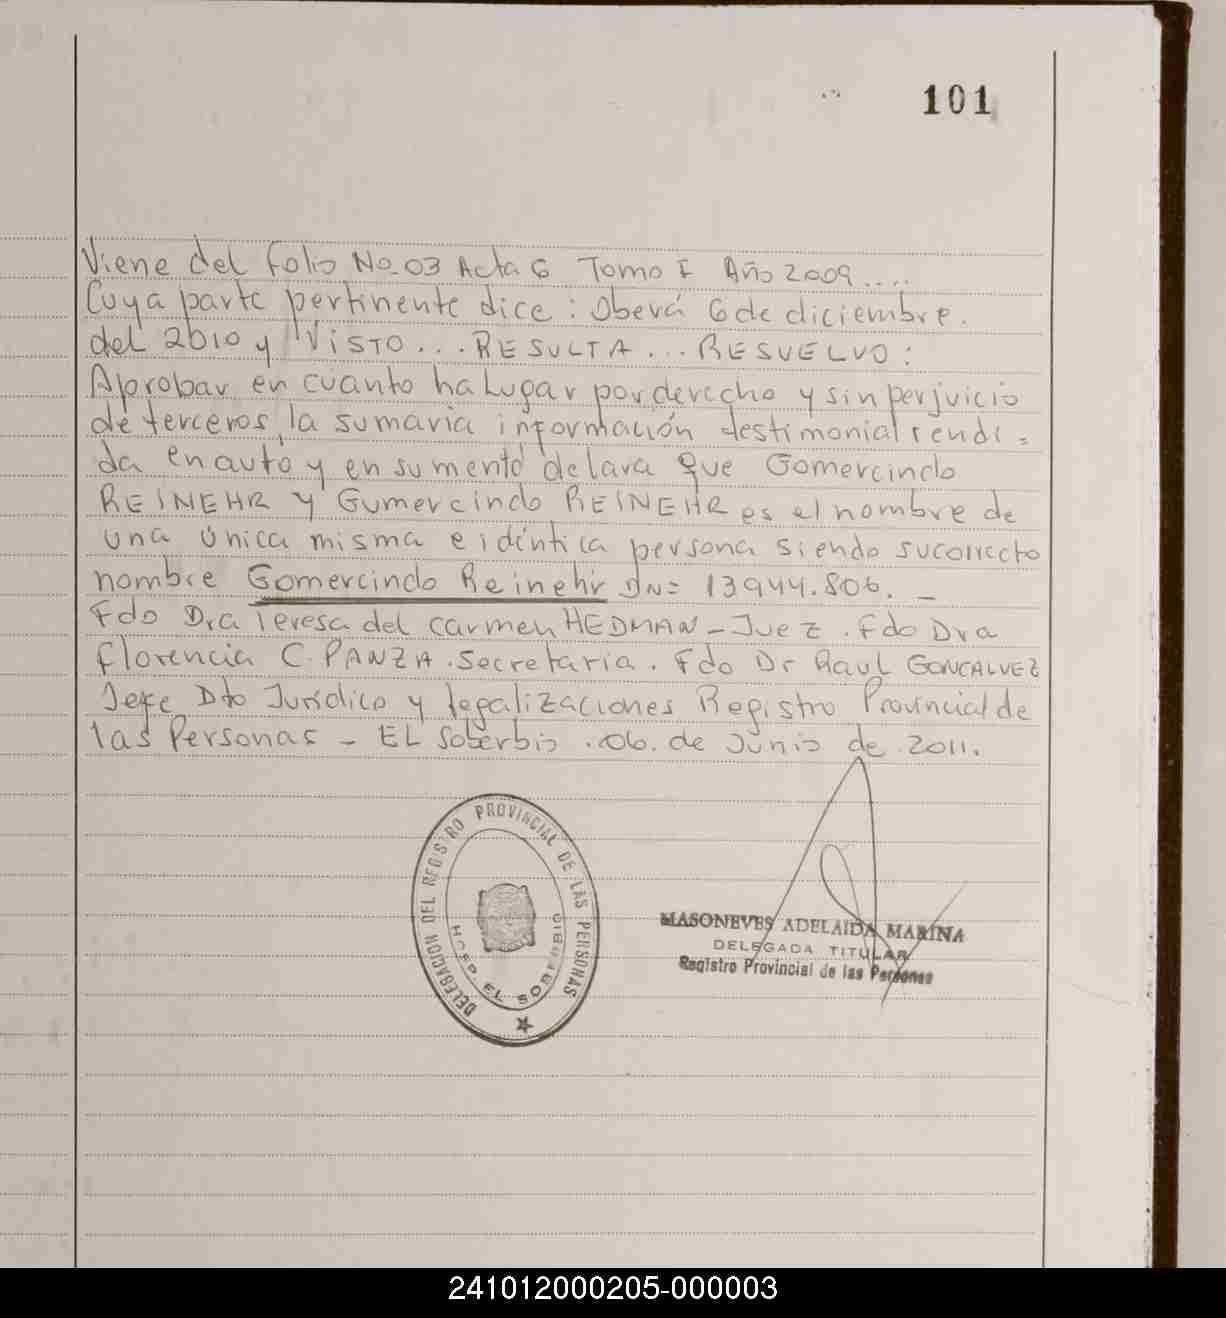 101
Viene del folio No 03 Acta 6 Tomo I Año 2009....
Cuya parte pertinente dice: Oberá 6 de diciembre.
del 2010 y VISTO...RESULTA...RESUELVO:
Aprobar en cuanto ha Lugar por derecho y sin perjuicio
de terceros, la sumaria información testimonial rendi=
da en auto y en su mento delara que Gomercindo
REINEHR y Gumercindo REINEHR es el nombre de
una única misma e idéntica persona siendo su correcto
nombre Gomercindo Reinehr DN= 13944.806. _
Fdo Dra Teresa del Carmen HEDMAN - Juez. Fdo Dra
Florencia C. PANZA. Secretaria. Fdo Dr Raul GONCALVEZ
Jefe Dto Jurídico y legalizaciones Registro Provincial de
las Personas - EL Soberbio. 06. de Junio de 2011.
DELEGACION DEL REGISTRO PROVINCIAL DE LAS PERSONAS
HOSP. EL SOBERBIO
MASONEVES ADELAIDA MARINA
DELEGADA TITULAR
Registro Provincial de las Personas
241012000205-000003